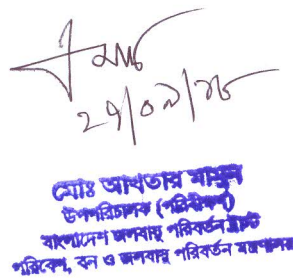 ২৭/০৯/২৮
মোঃ আখতার মামুন
উপপরিচালক (পরিবীক্ষণ)
বাংলাদেশ জলবায়ু পরিবর্তন ট্রাস্ট
পরিবেশ, বন ও জলবায়ু পরিবর্তন মন্ত্রণালয়